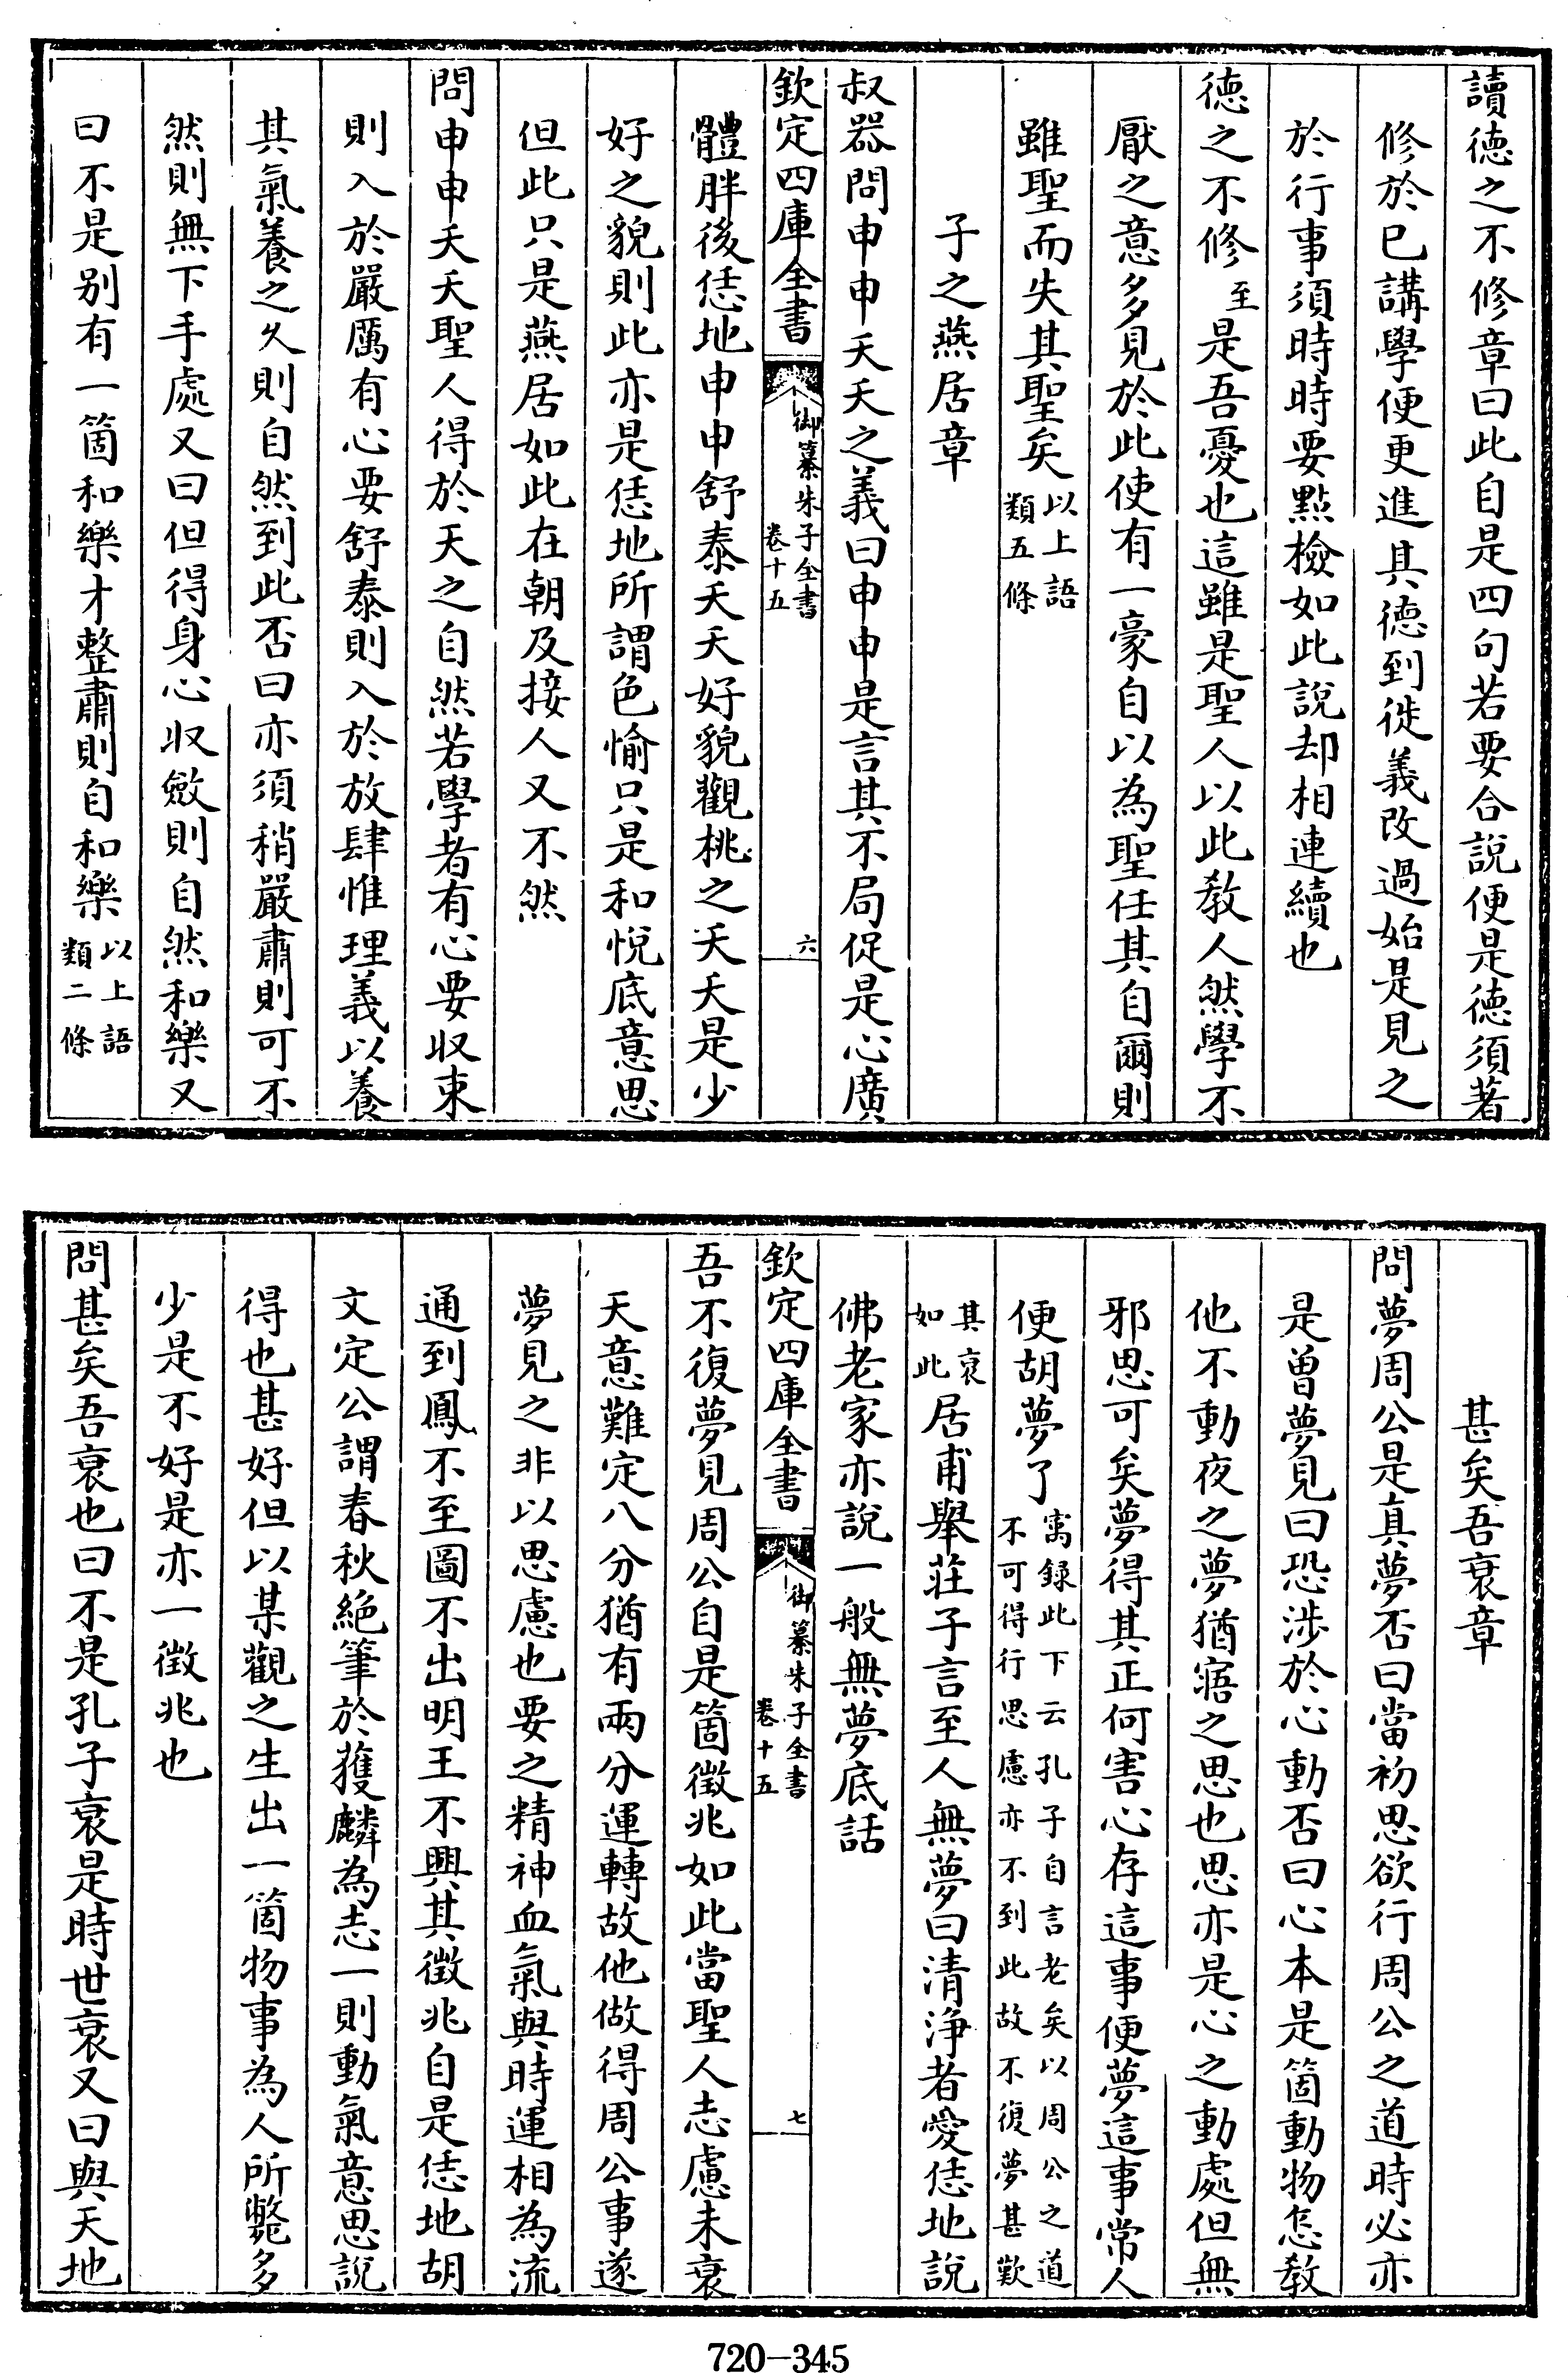 讀徳之不修章曰此自是四句若要合說便是徳須著
修於已講學便更進其德到徙義改過始是見之
於行事須時時要點檢如此說却相連續也
徳之不修至是吾憂也這雖是聖人以此教人然學不
厭之意多見於此使有一豪自以為聖任其自爾則
雖聖而失其聖矣以上語類五條
子之燕居章
叔器問申申夭夭之義曰申申是言其不局促是心廣
欽定四庫全書
御纂朱子全書
卷十五
六
體胖後恁地申申舒泰夭夭好貌觀桃之夭夭是少
好之貌則此亦是恁地所謂色愉只是和悅底意思
但此只是燕居如此在朝及接人又不然
問申申夭夭聖人得於天之自然若學者有心要収束
則入於嚴厲有心要舒泰則入於放肆惟理義以養
其氣養之久則自然到此否曰亦須稍嚴肅則可不
然則無下手處又曰但得身心収斂則自然和樂又
曰不是別有一箇和樂才整肅則自和樂以上語類二條
甚矣吾衰章
問夢周公是真夢否曰當初思欲行周公之道時必亦
是曾夢見曰恐涉於心動否曰心本是箇動物怎教
他不動夜之夢猶寤之思也思亦是心之動處但無
邪思可矣夢得其正何害心存這事便夢這事常人
便胡夢了寓録此下云孔子自言老矣以周公之道不可得行思慮亦不到此故不復夢甚歎
其衰如此居甫舉莊子言至人無夢曰清浄者愛恁地說
佛老家亦說一般無夢底話
欽定四庫全書
御纂朱子全書
卷十五
七
吾不復夢見周公自是箇徴兆如此當聖人志慮未衰
天意難定八分猶有兩分運轉故他做得周公事遂
夢見之非以思慮也要之精神血氣與時運相為流
通到鳳不至圖不出明王不興其徴兆自是恁地胡
文定公謂春秋絶筆於獲麟為志一則動氣意思說
得也甚好但以某觀之生出一箇物事為人所斃多
少是不好是亦一徴兆也
問甚矣吾衰也曰不是孔子衰是時世衰又曰與天地
720-345